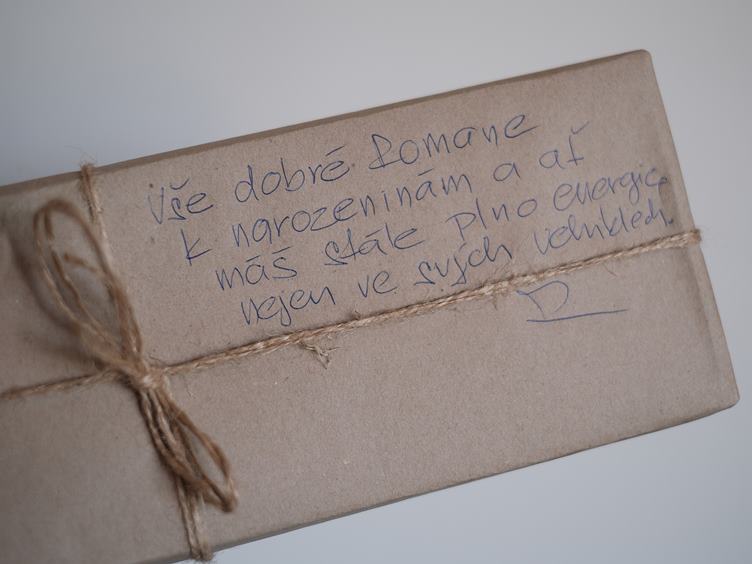 Vše dobré Romane
k narozeninám a ať
máš stále plno energie
nejen ve svých vehiklech.
D